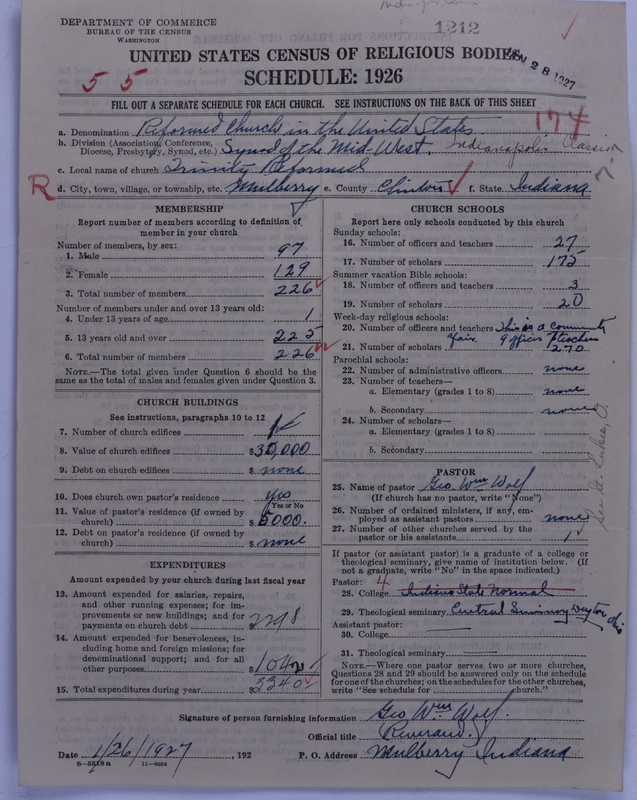 DEPARTMENT OF COMMERCE
BUREAU OF THE CENSUS
WASHINGTON
1212
UNITED STATES CENSUS OF RELIGIOUS BODIES
28 1927
SCHEDULE: 1926
5 5
FILL OUT A SEPARATE SCHEDULE FOR EACH CHURCH. SEE INSTRUCTIONS ON THE BACK OF THIS SHEET
174
a. Denomination Reformed Church in the United States
b. Division (Association, Conference, Diocese, Presbytery, Synod, etc.) Synod of the Mid-West. Indianapolis Classis
c. Local name of church Trinity Reformed
R d. City, town, village, or township, etc. Mulberry e. County Clinton f. State Indiana
MEMBERSHIP
Report number of members according to definition of
member in your church
Number of members, by sex:
1. Male 97
2. Female 129
3. Total number of members 226
Number of members under and over 13 years old:
4. Under 13 years of age 1
5. 13 years old and over 225
6. Total number of members 226
NOTE.—The total given under Question 6 should be
same as the total of males and females given under Question 3.
CHURCH BUILDINGS
See instructions, paragraphs 10 to 12
7. Number of church edifices
8. Value of church edifices $30,000
9. Debt on church edifices $ none
10. Does church own pastor's residence yes
Yes or No
11. Value of pastor's residence (if owned by
church) $5000.
12. Debt on pastor's residence (if owned by
church) $ none
EXPENDITURES
Amount expended by your church during last fiscal year
13. Amount expended for salaries, repairs,
and other running expenses; for im-
provements or new buildings; and for
payments on church debt $2298
14. Amount expended for benevolences, in-
cluding home and foreign missions; for
denominational support; and for all
other purposes $1042
15. Total expenditures during year $3340
CHURCH SCHOOLS
Report here only schools conducted by this church
Sunday schools:
16. Number of officers and teachers 27
17. Number of scholars 175
Summer vacation Bible schools:
18. Number of officers and teachers 3
19. Number of scholars 20
Week-day religious schools:
20. Number of officers and teachers This is a community
affair. 9 officers & teachers
21. Number of scholars 270
Parochial schools:
22. Number of administrative officers none
23. Number of teachers—
a. Elementary (grades 1 to 8) none
b. Secondary none
24. Number of scholars—
a. Elementary (grades 1 to 8)
b. Secondary
PASTOR
25. Name of pastor Geo Wm Wolf
(If church has no pastor, write "None")
26. Number of ordained ministers, if any, em-
ployed as assistant pastors none
27. Number of other churches served by the
pastor or his assistants 1
If pastor (or assistant pastor) is a graduate of a college or
theological seminary, give name of institution below. (If
not a graduate, write "No" in the space indicated.)
Pastor: 4
28. College Indiana State Normal
29. Theological seminary Central Seminary Dayton Ohio
Assistant pastor:
30. College
31. Theological seminary
NOTE.—Where one pastor serves two or more churches,
Questions 28 and 29 should be answered only on the schedule
for one of the churches; on the schedules for the other churches,
write "See schedule for church."
Signature of person furnishing information Geo Wm Wolf.
Official title Reverand.
Date 1/26/1927, 192 P. O. Address Mulberry Indiana
8—5518a 11—9054